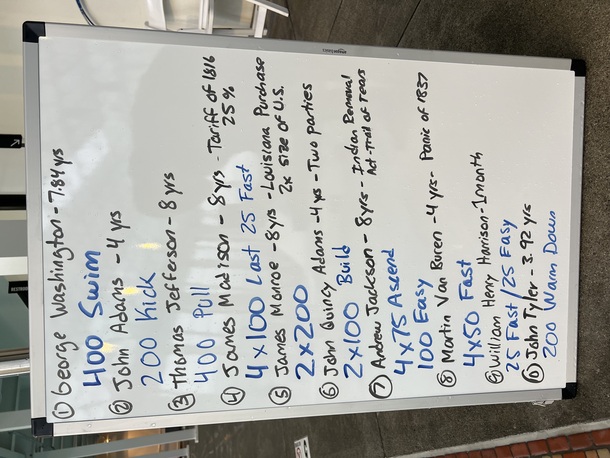 ① George Washington - 7.84 yrs
400 Swim
② John Adams - 4 yrs
200 Kick
③ Thomas Jefferson - 8 yrs
400 Pull
④ James Madison - 8yrs - Tariff of 1816
25%
4x100 Last 25 Fast
⑤ James Monroe - 8yrs - Louisiana Purchase
2x size of U.S.
2x200
⑥ John Quincy Adams - 4 yrs - Two parties
2x100 Build
⑦ Andrew Jackson - 8yrs - Indian Removal
Act - Trail of Tears
4x75 Ascend
100 Easy
⑧ Martin Van Buren - 4 yrs - Panic of 1837
4x50 Fast
⑨ William Henry Harrison - 1month
25 Fast / 25 Easy
⑩ John Tyler - 3.92 yrs
200 Warm Down